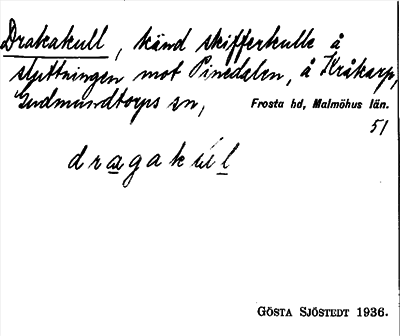 Drakakull, känd skifferkulle å
sluttningen mot Pinedalen, å Kråkarp,
Gudmundtorps sn, Frosta hd, Malmöhus län.
51
dragakul
GÖSTA SJÖSTEDT 1936.